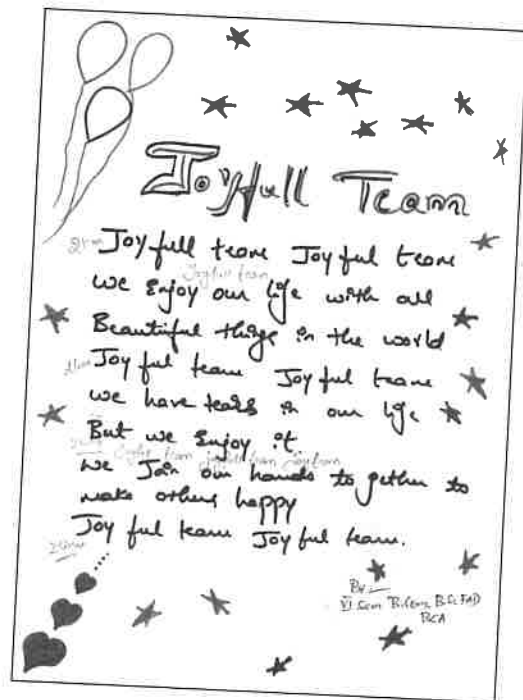 Joyfull Team
Joyfull team Joyful team
Joyfull team
we enjoy our life with all
Beautiful things in the world
Joyful team Joyful team
we have tears in our life
But we enjoy it
we Join our hands to gether to
make others happy
Joyful team Joyful team.
By
VI Sem B.Com, B.Sc FAD
BCA